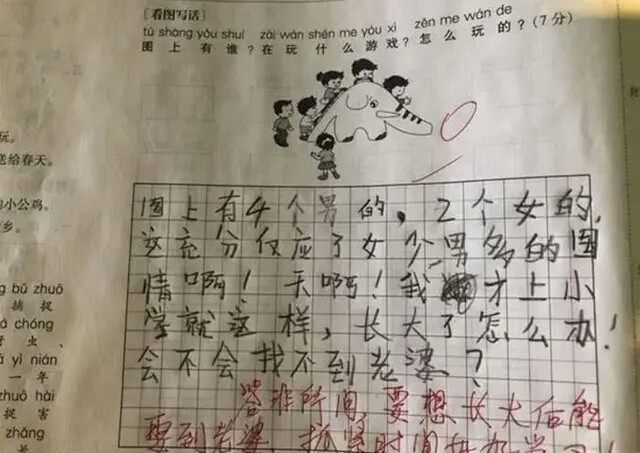 [看图写话]
tú shàng yǒu shuí zài wán shén me yóu xì zěn me wán de
图上有谁？在玩什么游戏？怎么玩的？(7分)
图上有4个男的，2个女的，
这充分仅应了女少男多的国
情啊！天啊！我才上小
学就这样，长大了怎么办！
会不会找不到老婆？
答非所问，要想长大后能
要到老婆，抓紧时间
玩。
送给春天。
的小公鸡。
乡。
ng bǔ zhuō
捕捉
chóng
虫、
yì nián
一年
zhuō hài
捉害
zhǎng